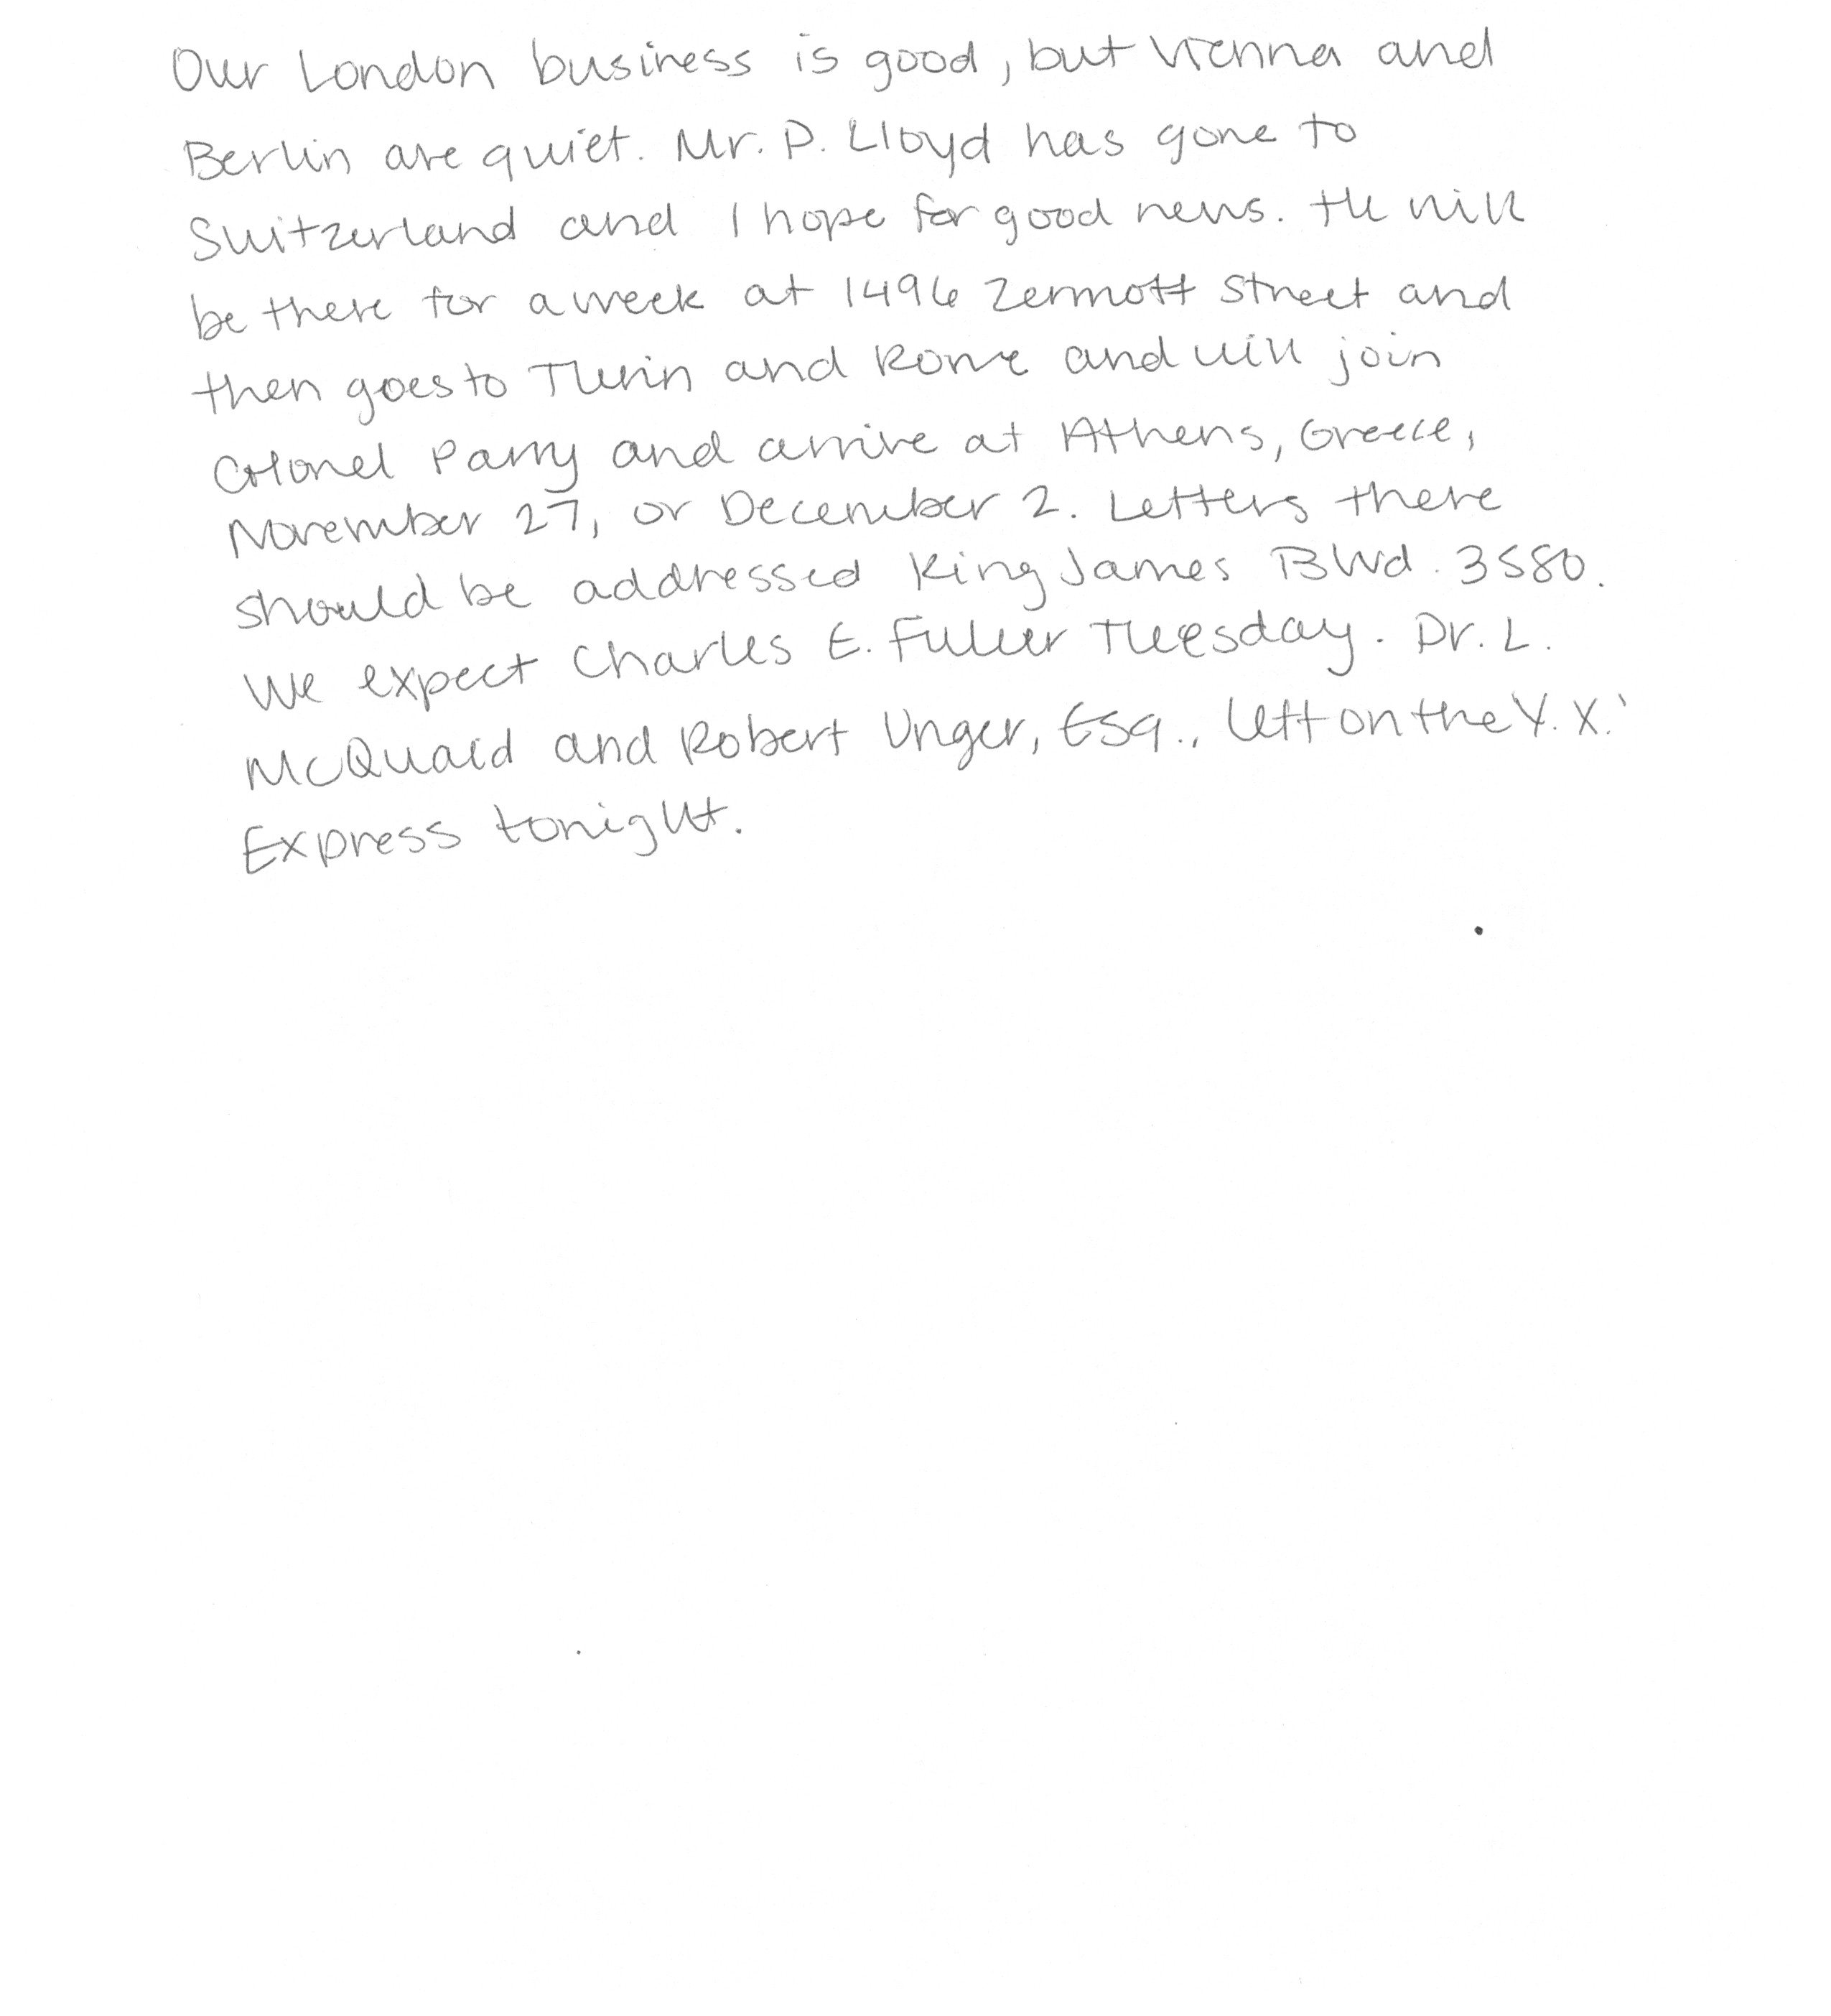 Our London business is good, but Vienna and
Berlin are quiet. Mr. D. Lloyd has gone to
Switzerland and I hope for good news. He will
be there for a week at 1496 Zermott Street and
then goes to Turin and Rome and will join
Colonel Parry and arrive at Athens, Greece,
November 27, or December 2. Letters there
should be addressed King James Blvd. 3580.
We expect Charles E. Fuller Tuesday. Dr. L.
McQuaid and Robert Unger, Esq., left on the Y. X.'
Express tonight.